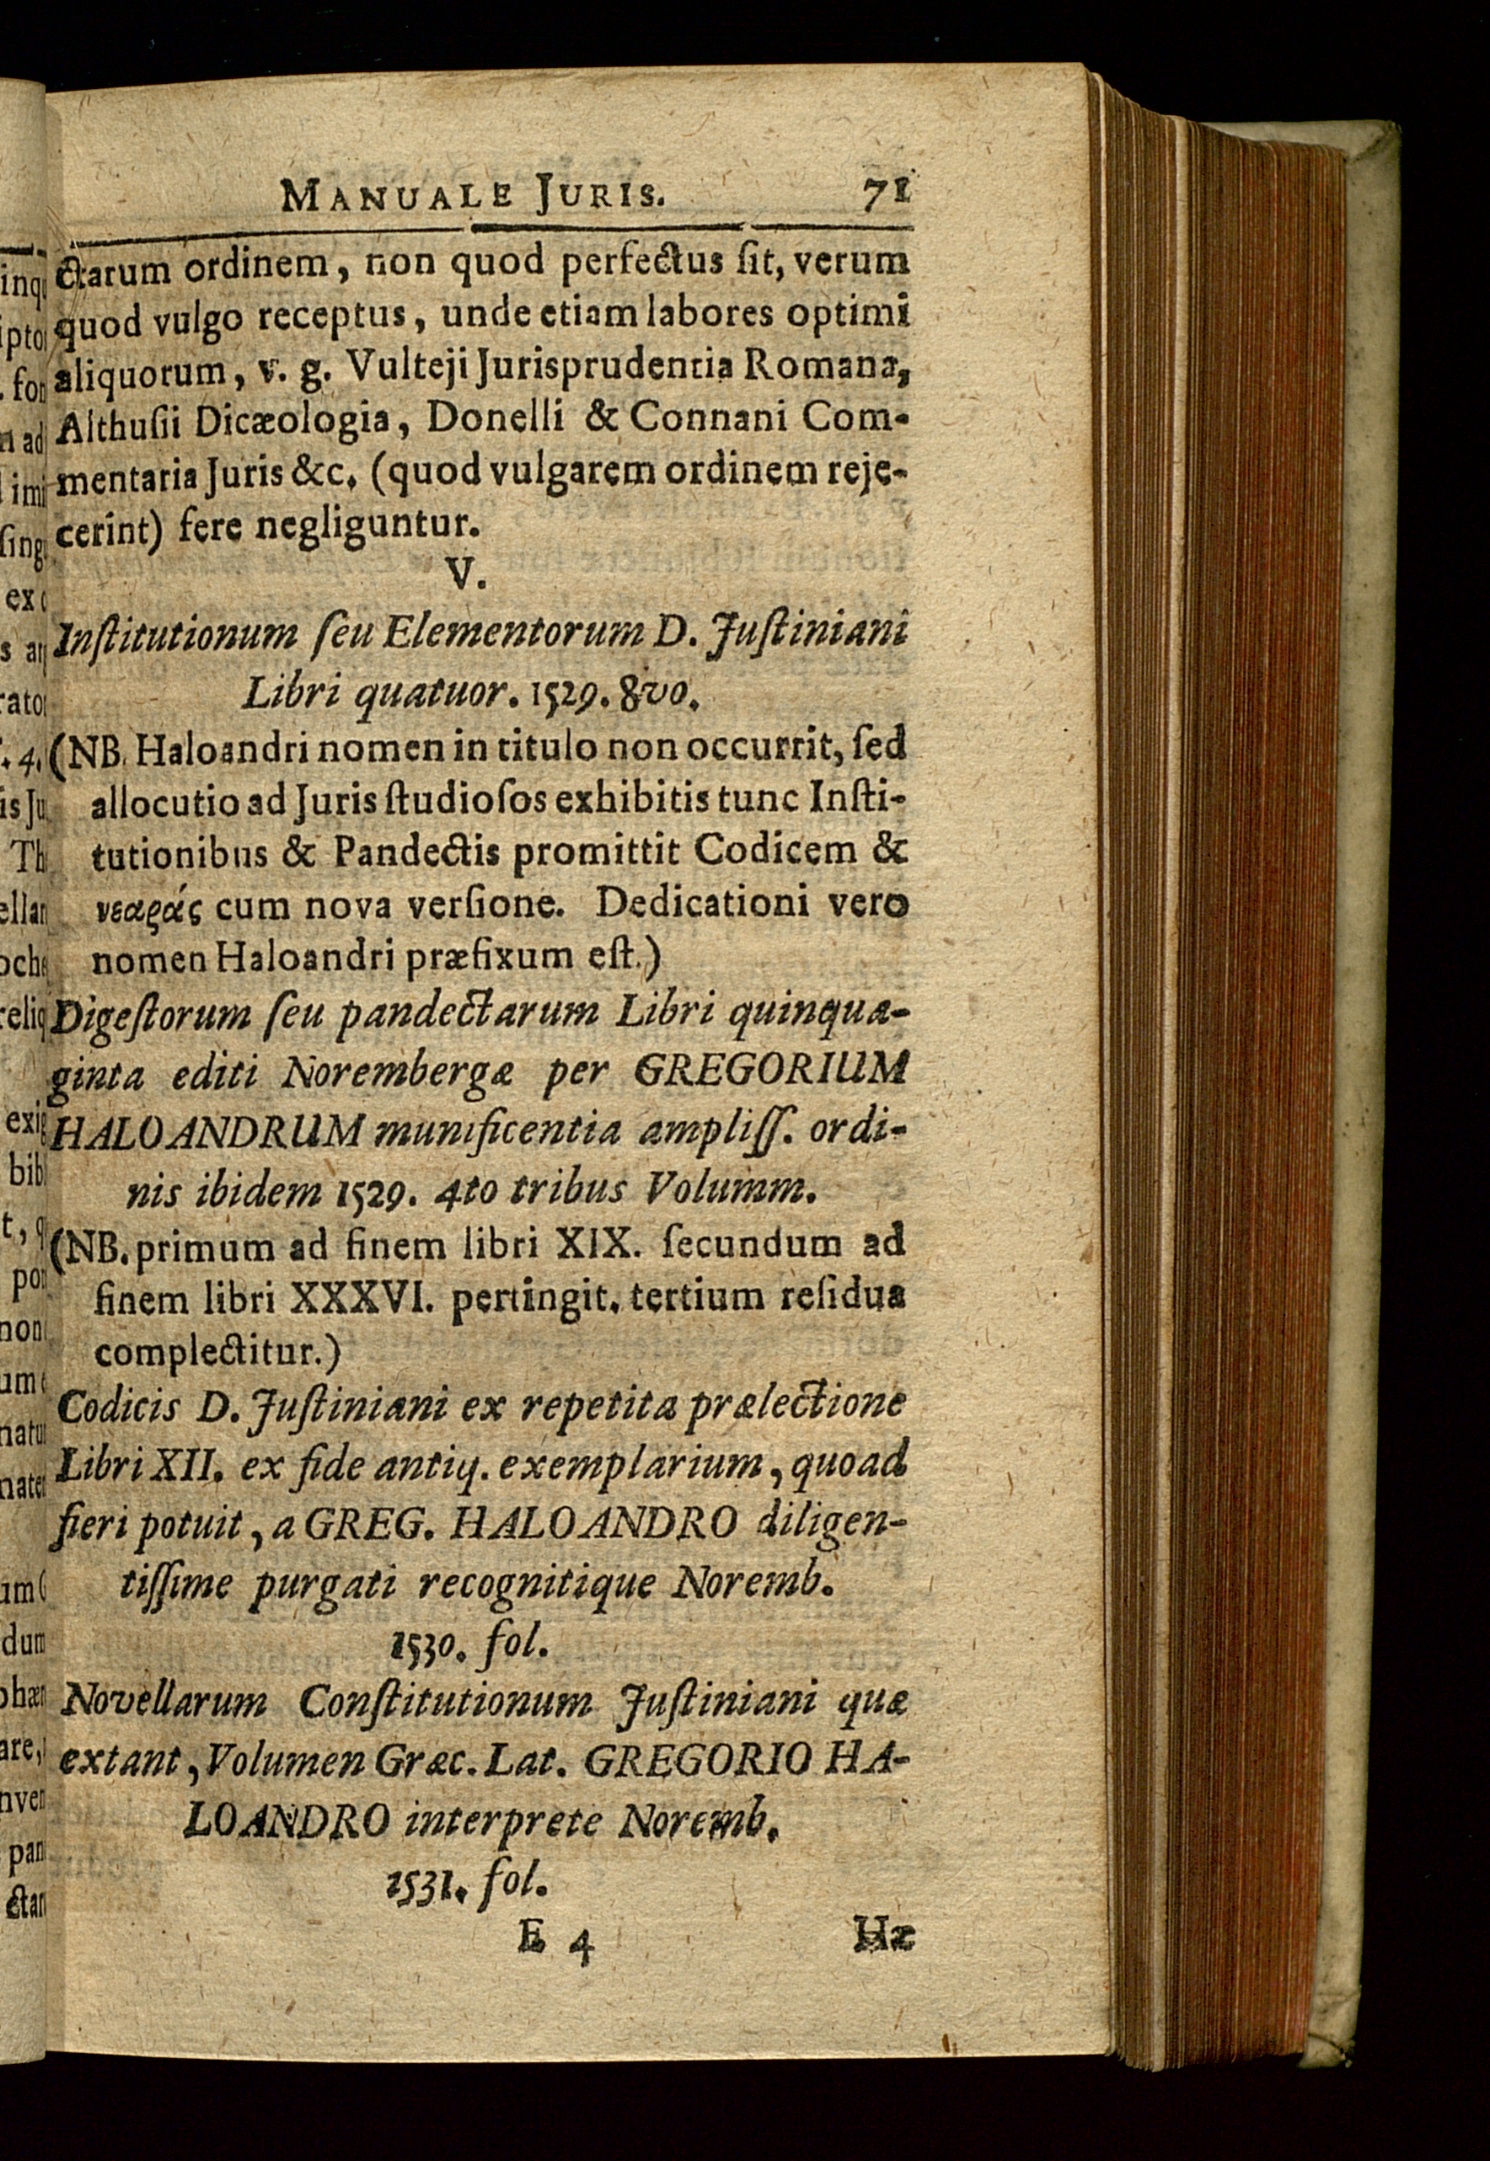 MANUALE JURIS. 71
ctarum ordinem, non quod perfectus ſit, verum
quod vulgo receptus, unde etiam labores optimi
aliquorum, v. g. Vulteji Jurisprudentia Romana,
Althuſii Dicæologia, Donelli & Connani Com-
mentaria Juris &c. (quod vulgarem ordinem reje-
cerint) fere negliguntur.
V.
Inſtitutionum ſeu Elementorum D. Juſtiniani
Libri quatuor. 1529. 8vo.
(NB. Haloandri nomen in titulo non occurrit, ſed
allocutio ad Juris ſtudioſos exhibitis tunc Inſti-
tutionibus & Pandectis promittit Codicem &
νεαρὰς cum nova verſione. Dedicationi vero
nomen Haloandri præfixum eſt.)
Digeſtorum ſeu pandectarum Libri quinqua-
ginta editi Norembergæ per GREGORIUM
HALOANDRUM munificentia ampliſſ. ordi-
nis ibidem 1529. 4to tribus Volumm.
(NB. primum ad finem libri XIX. ſecundum ad
finem libri XXXVI. pertingit, tertium reſidua
complectitur.)
Codicis D. Juſtiniani ex repetita prælectione
Libri XII. ex fide antiq. exemplarium, quoad
fieri potuit, a GREG. HALOANDRO diligen-
tiſſime purgati recognitique Noremb.
1530. fol.
Novellarum Conſtitutionum Juſtiniani quæ
extant, Volumen Græc. Lat. GREGORIO HA-
LOANDRO interprete Noremb.
1531. fol.
E 4 Hæ